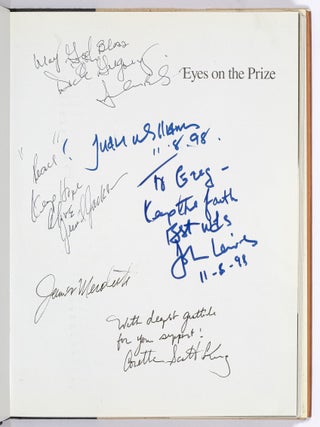 May God Bless
Dick Gregory
Eyes on the Prize
Juan Williams
11-8-98.
"Peace"!
To Greg -
Keep Hope
Alive
Keep the faith
Best wishes
John Lewis
11-8-98
James Meredith
With deepest gratitude
for your support!
Coretta Scott King